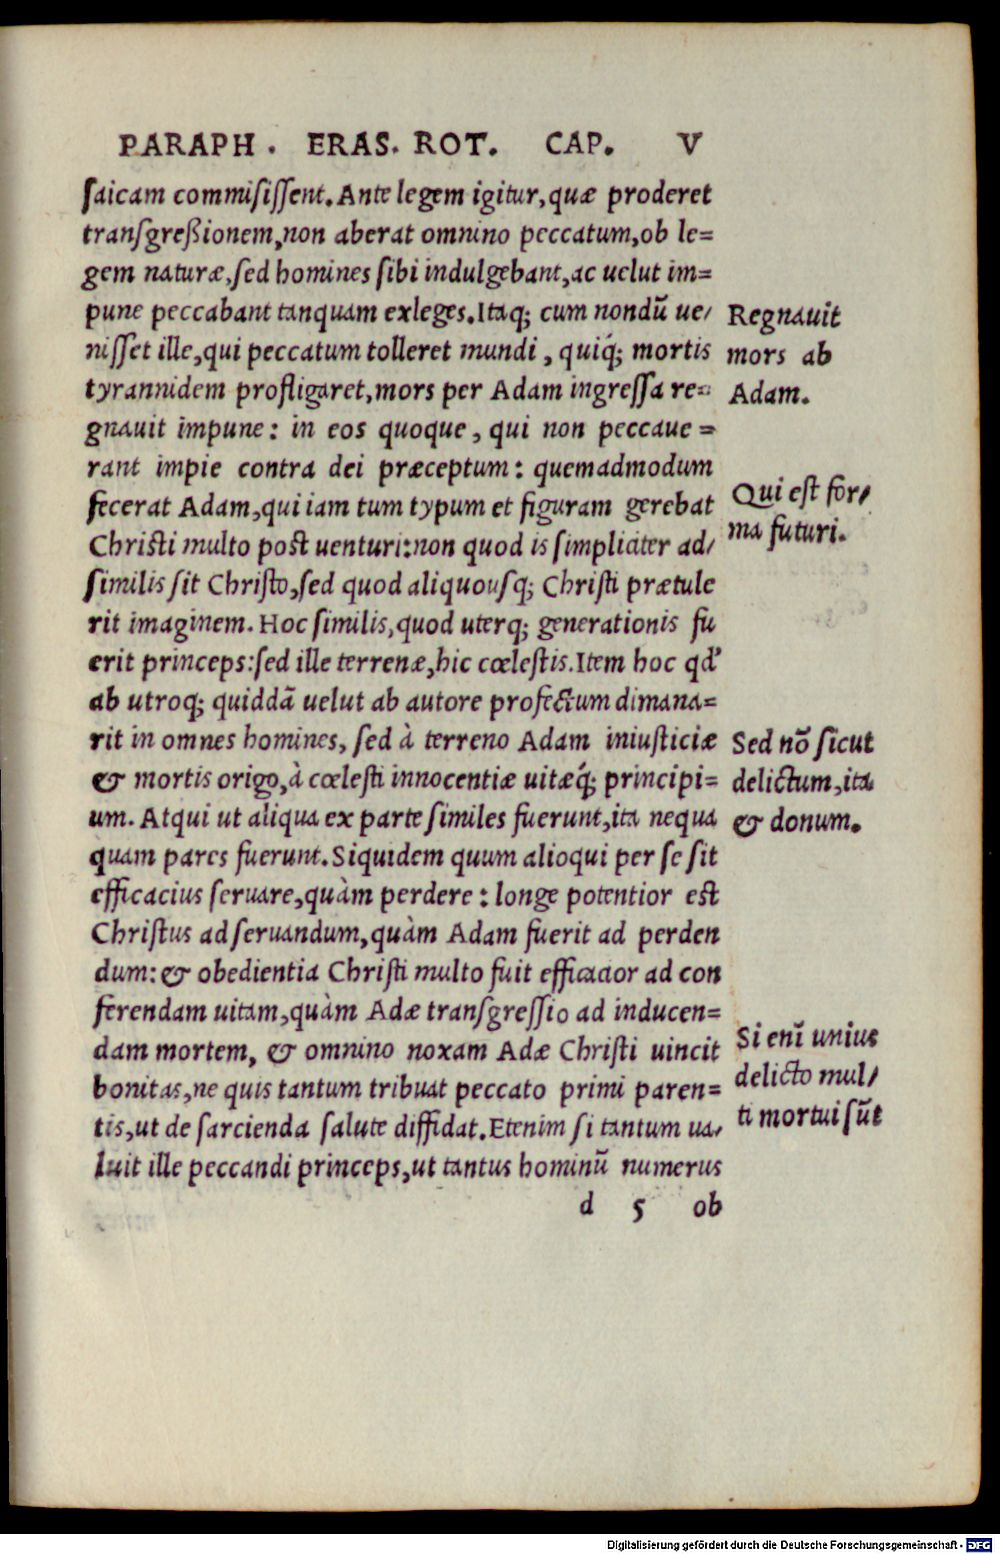 PARAPH. ERAS. ROT. CAP. V
ſaicam commiſiſſent. Ante legem igitur, quæ proderet
tranſgreßionem, non aberat omnino peccatum, ob le=
gem naturæ, ſed homines ſibi indulgebant, ac uelut im=
pune peccabant tanquam exleges. Itaq; cum nondũ ue/
niſſet ille, qui peccatum tolleret mundi, quiq́; mortis
tyrannidem profligaret, mors per Adam ingreſſa re=
gnauit impune: in eos quoque, qui non peccaue=
rant impie contra dei præceptum: quemadmodum
fecerat Adam, qui iam tum typum et figuram gerebat
Chriſti multo poſt uenturi: non quod is ſimpliciter ad/
ſimilis ſit Chriſto, ſed quod aliquouſq; Chriſti prætule
rit imaginem. Hoc ſimilis, quod uterq; generationis fu
erit princeps: ſed ille terrenæ, hic cœleſtis. Item hoc qd'
ab utroq; quiddã uelut ab autore profectum dimana=
rit in omnes homines, ſed à terreno Adam iniuſticiæ
& mortis origo, à cœleſti innocentiæ uitæq́; principi=
um. Atqui ut aliqua ex parte ſimiles fuerunt, ita nequa
quam pares fuerunt. Siquidem quum alioqui per ſe ſit
efficacius ſeruare, quàm perdere: longe potentior eſt
Chriſtus ad ſeruandum, quàm Adam fuerit ad perden
dum: & obedientia Chriſti multo fuit efficacior ad con
ferendam uitam, quàm Adæ tranſgreſſio ad inducen=
dam mortem, & omnino noxam Adæ Chriſti uincit
bonitas, ne quis tantum tribuat peccato primi paren=
tis, ut de ſarcienda ſalute diffidat. Etenim ſi tantum ua/
luit ille peccandi princeps, ut tantus hominũ numerus
d 5 ob
Regnauit
mors ab
Adam.
Qui eſt for/
ma futuri.
Sed nõ ſicut
delictum, ita
& donum.
Si enĩ unius
delicto mul/
ti mortui ſũt
Digitalisierung gefördert durch die Deutsche Forschungsgemeinschaft - DFG